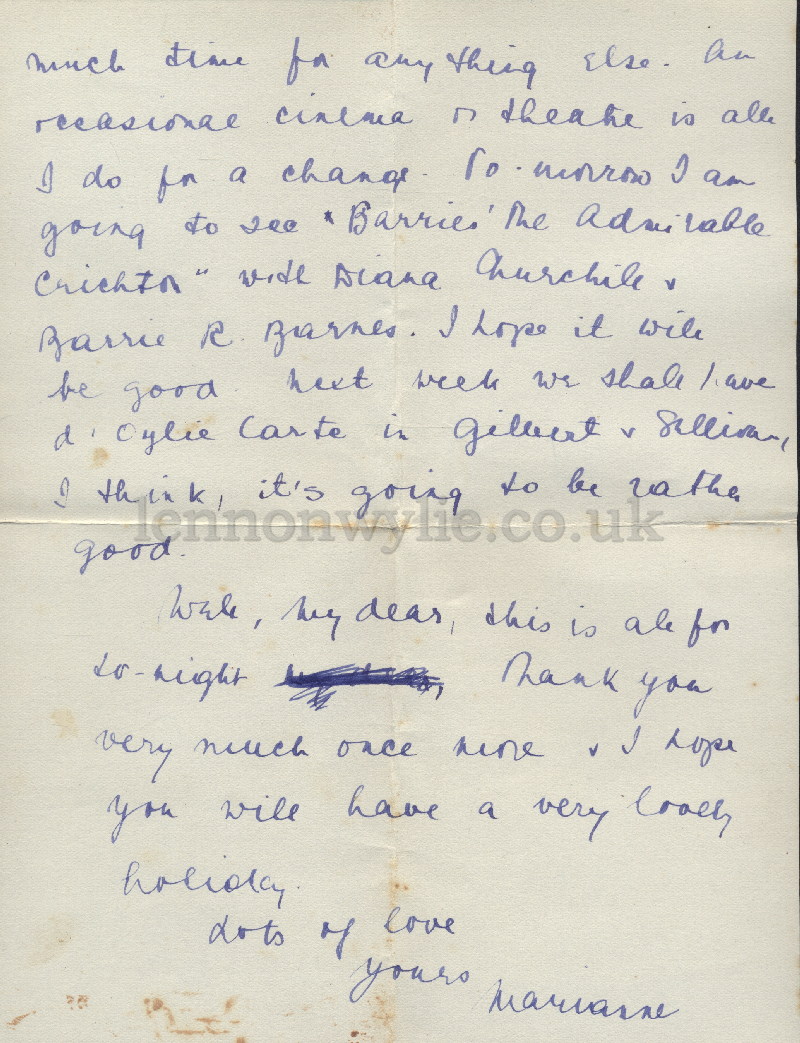 much time for anything else. An
occasional cinema or theatre is all
I do for a change. To-morrow I am
going to see "Barries' The Admirable
Crichton" with Diana Churchill &
Barrie R. Barnes. I hope it will
be good. Next week we shall have
d'Oylie Carte in Gilbert & Sullivan,
I think, it's going to be rather
good.
lennonwylie.co.uk
Well, my dear, this is all for
to-night Thank you
very much once more & I hope
you will have a very lovely
holiday.
Lots of love
Yours
Marianne